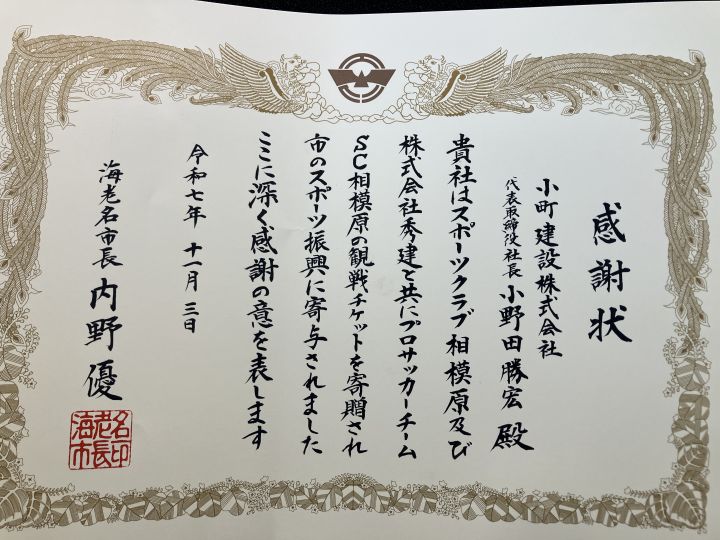 感謝状
小町建設株式会社
代表取締役社長 小野田勝宏 殿
貴社はスポーツクラブ相模原及び
株式会社秀建と共にプロサッカーチーム
SC相模原の観戦チケットを寄贈され
市のスポーツ振興に寄与されました
ここに深く感謝の意を表します
令和七年 十一月 三日
海老名市長 内野 優
海老名市長印